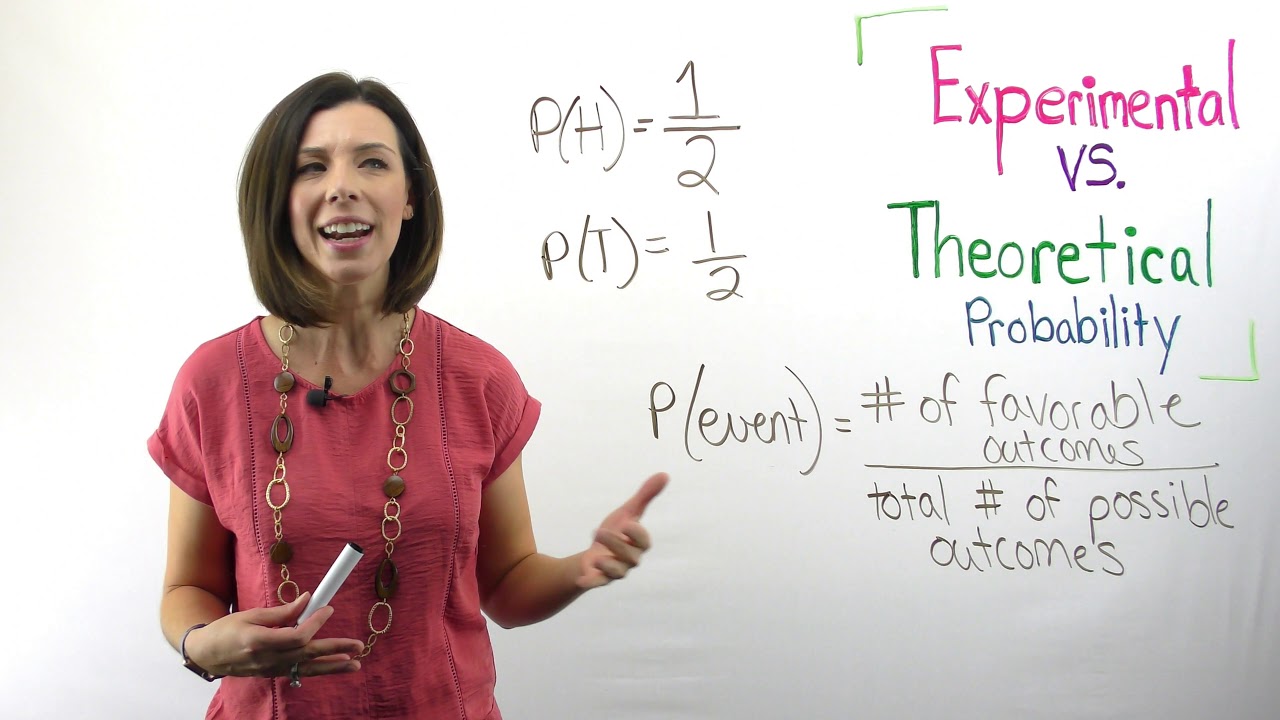 P(H) = 1/2
P(T) = 1/2
Experimental
VS.
Theoretical
Probability
P(event) = # of favorable
outcomes
total # of possible
outcomes